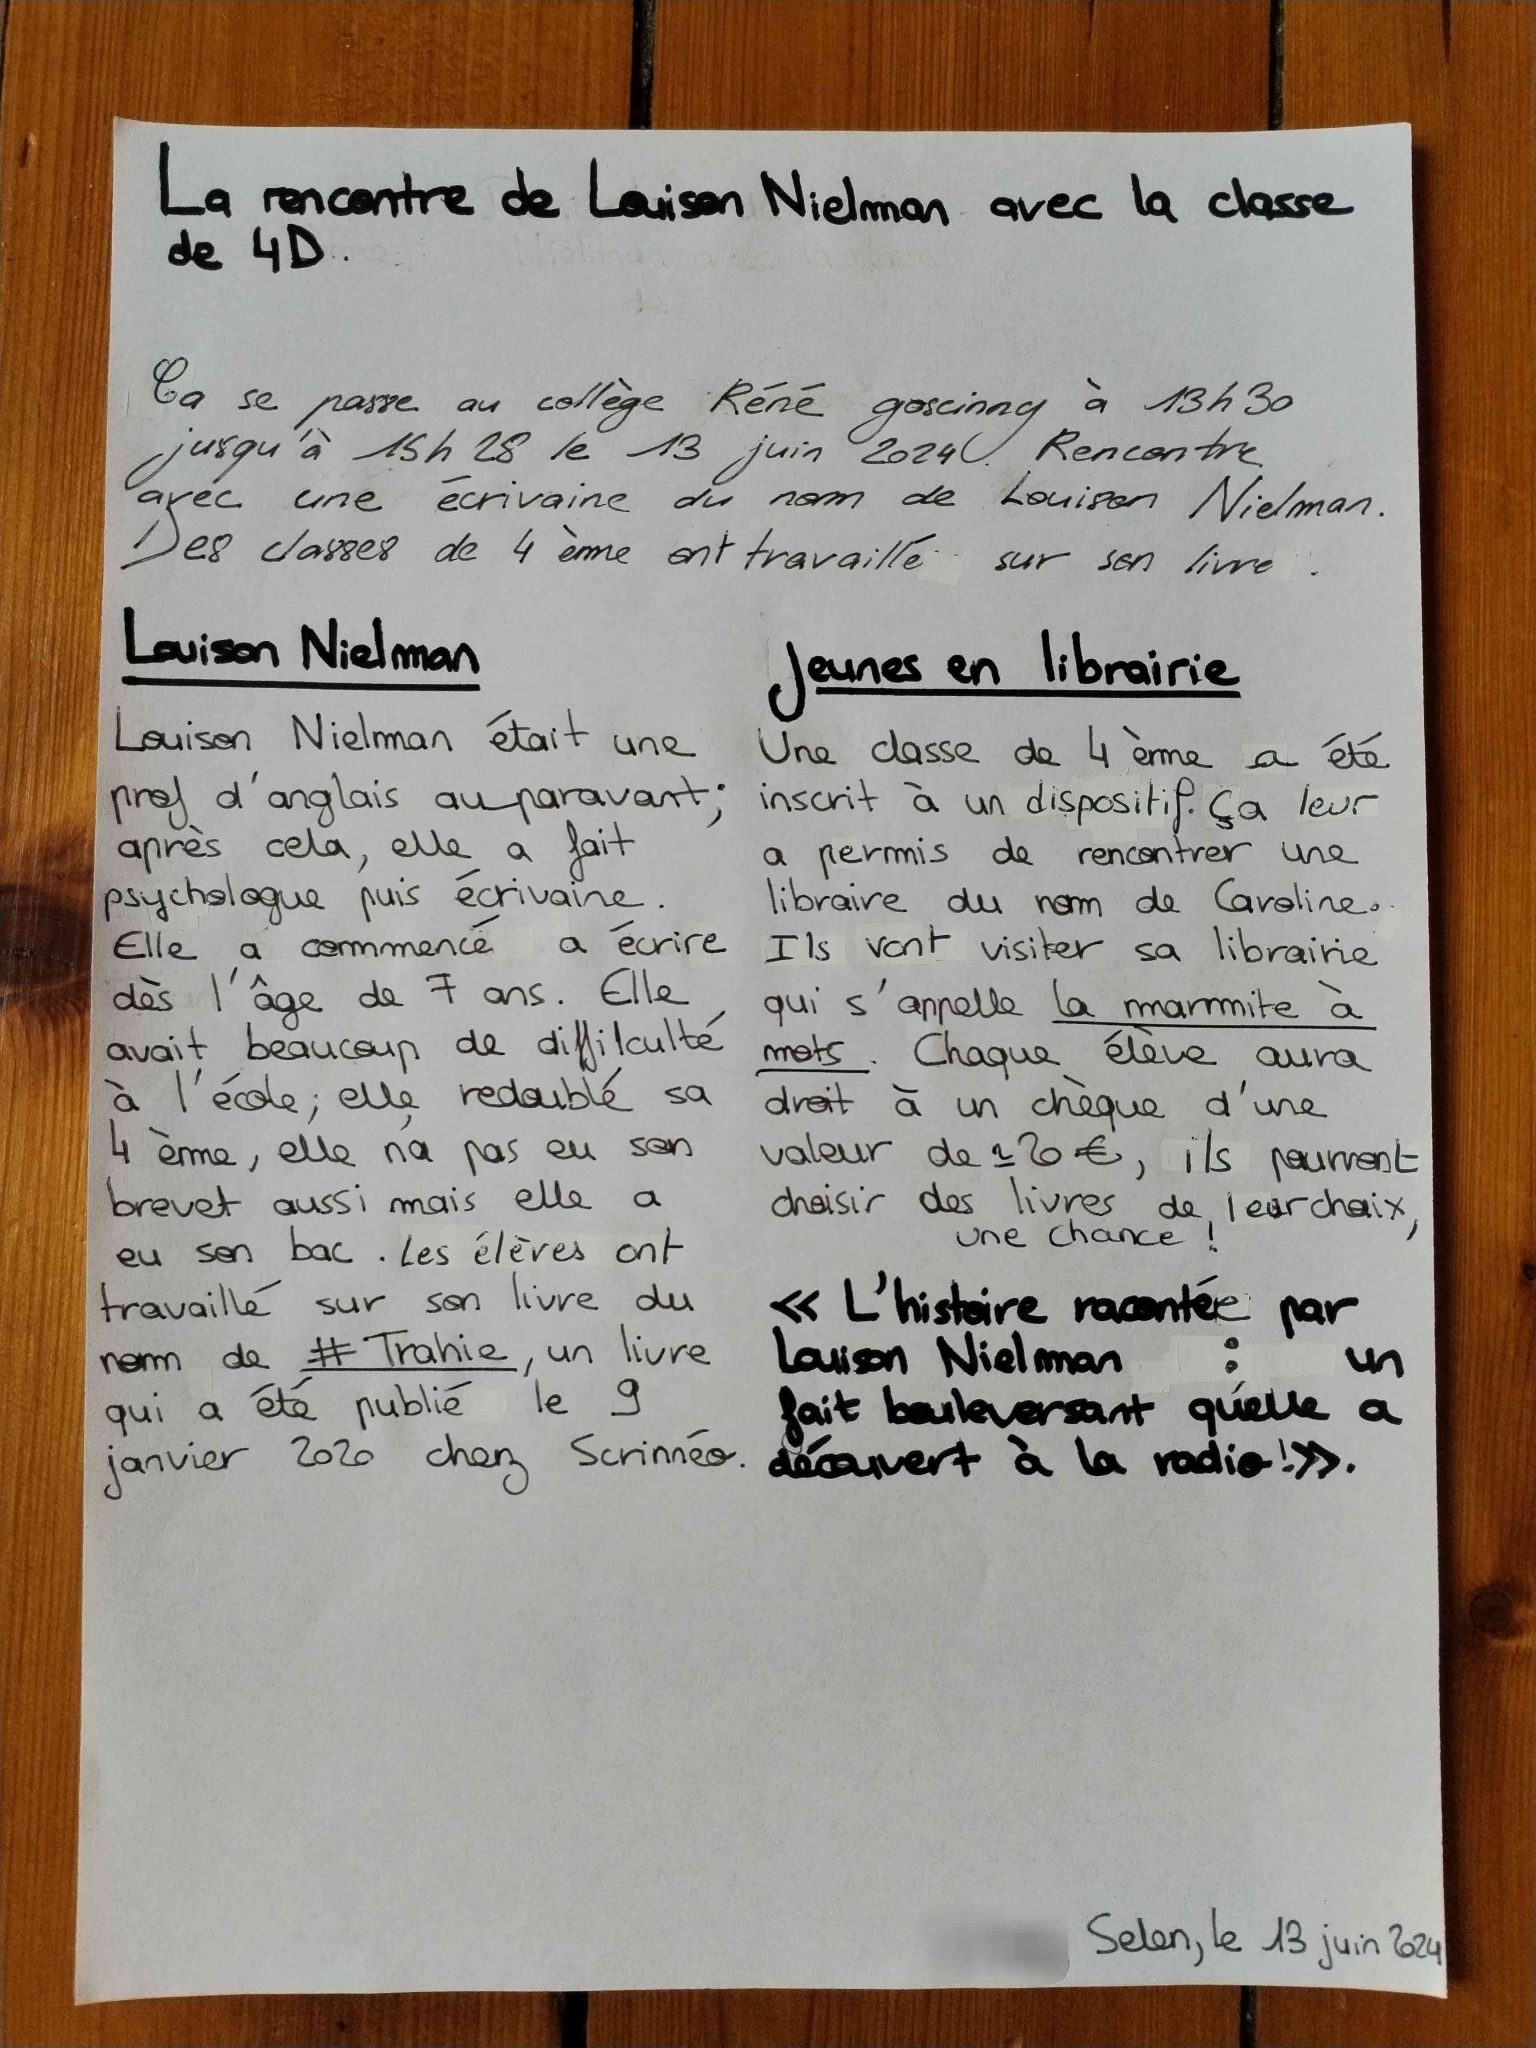 La rencontre de Louison Nielman avec la classe
de 4D.
Ça se passe au collège Réné goscinny à 13h30
jusqu'à 15h28 le 13 juin 2024. Rencontre
avec une écrivaine du nom de Louison Nielman.
Des classes de 4ème ont travaillé sur son livre.
Louison Nielman
Louison Nielman était une
prof d'anglais auparavant;
après cela, elle a fait
psychologue puis écrivaine.
Elle a commencé a écrire
dès l'âge de 7 ans. Elle
avait beaucoup de diffilculté
à l'école; elle redoublé sa
4 ème, elle n'a pas eu son
brevet aussi mais elle a
eu son bac. Les élèves ont
travaillé sur son livre du
nom de #Trahie, un livre
qui a été publié le 9
janvier 2020 chez Scrinnéo.
Jeunes en librairie
Une classe de 4 ème a été
inscrit à un dispositif. Ça leur
a permis de rencontrer une
libraire du nom de Caroline.
Ils vont visiter sa librairie
qui s'appelle la marmite à
mots. Chaque élève aura
droit à un chèque d'une
valeur de ≃20€, ils pourront
choisir des livres de leur choix,
une chance !
« L'histoire racontée par
Louison Nielman : un
fait bouleversant qu'elle a
découvert à la radio!».
Selen, le 13 juin 2024